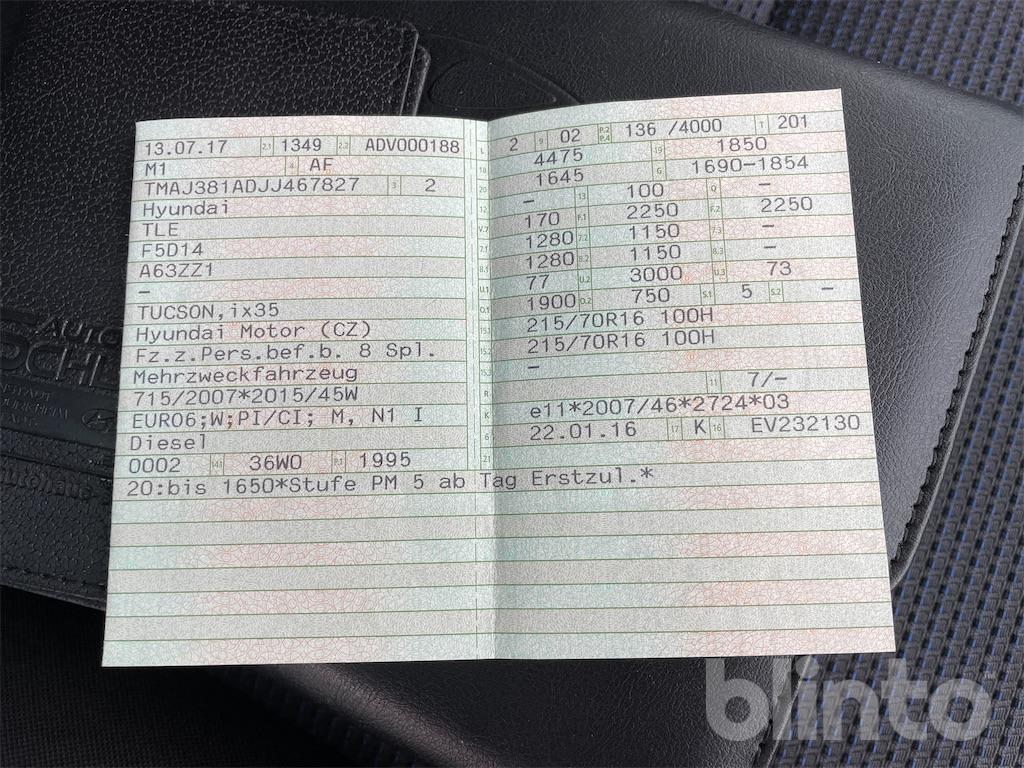 13.07.17 2.1 1349 2.2 ADV000188
M1 4 AF
TMAJ381ADJJ467827 3 2
Hyundai
TLE
F5D14
A63ZZ1
–
TUCSON,ix35
Hyundai Motor (CZ)
Fz.z.Pers.bef.b. 8 Spl.
Mehrzweckfahrzeug
715/2007*2015/45W
EURO6;W;PI/CI; M, N1 I
Diesel
0002 14.1 36W0 P.1 1995
L 2 9 02 P.2 P.4 136 /4000 T 201
18 4475 19 1850
20 1645 G 1690-1854
12 – 13 100 Q –
V.7 170 F.1 2250 F.2 2250
7.1 1280 7.2 1150 7.3 –
8.1 1280 8.2 1150 8.3 –
U.1 77 U.2 3000 U.3 73
O.1 1900 O.2 750 S.1 5 S.2 –
15.1 215/70R16 100H
15.2 215/70R16 100H
15.3 –
R 11 7/–
K e11*2007/46*2724*03
6 22.01.16 17 K 16 EV232130
21
20:bis 1650*Stufe PM 5 ab Tag Erstzul.*
AUTO
blinto